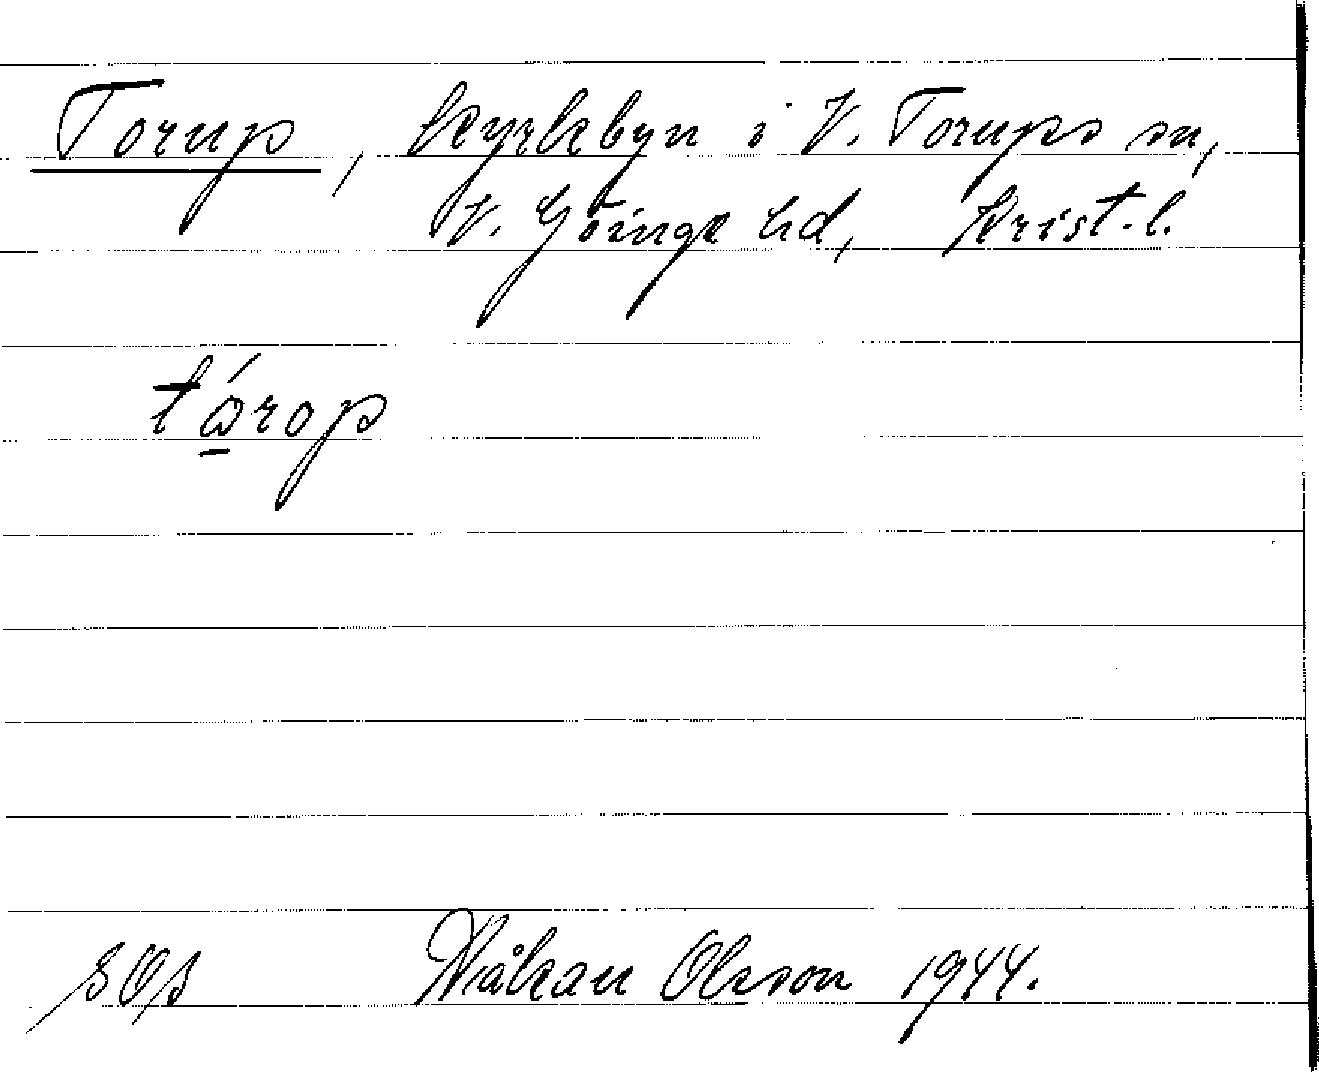 Torup, kyrkbyn i V. Torups sn,
V. Göinge hd, Krist.l.
tɷ́rop
SOS Håkan Olsson 1944.